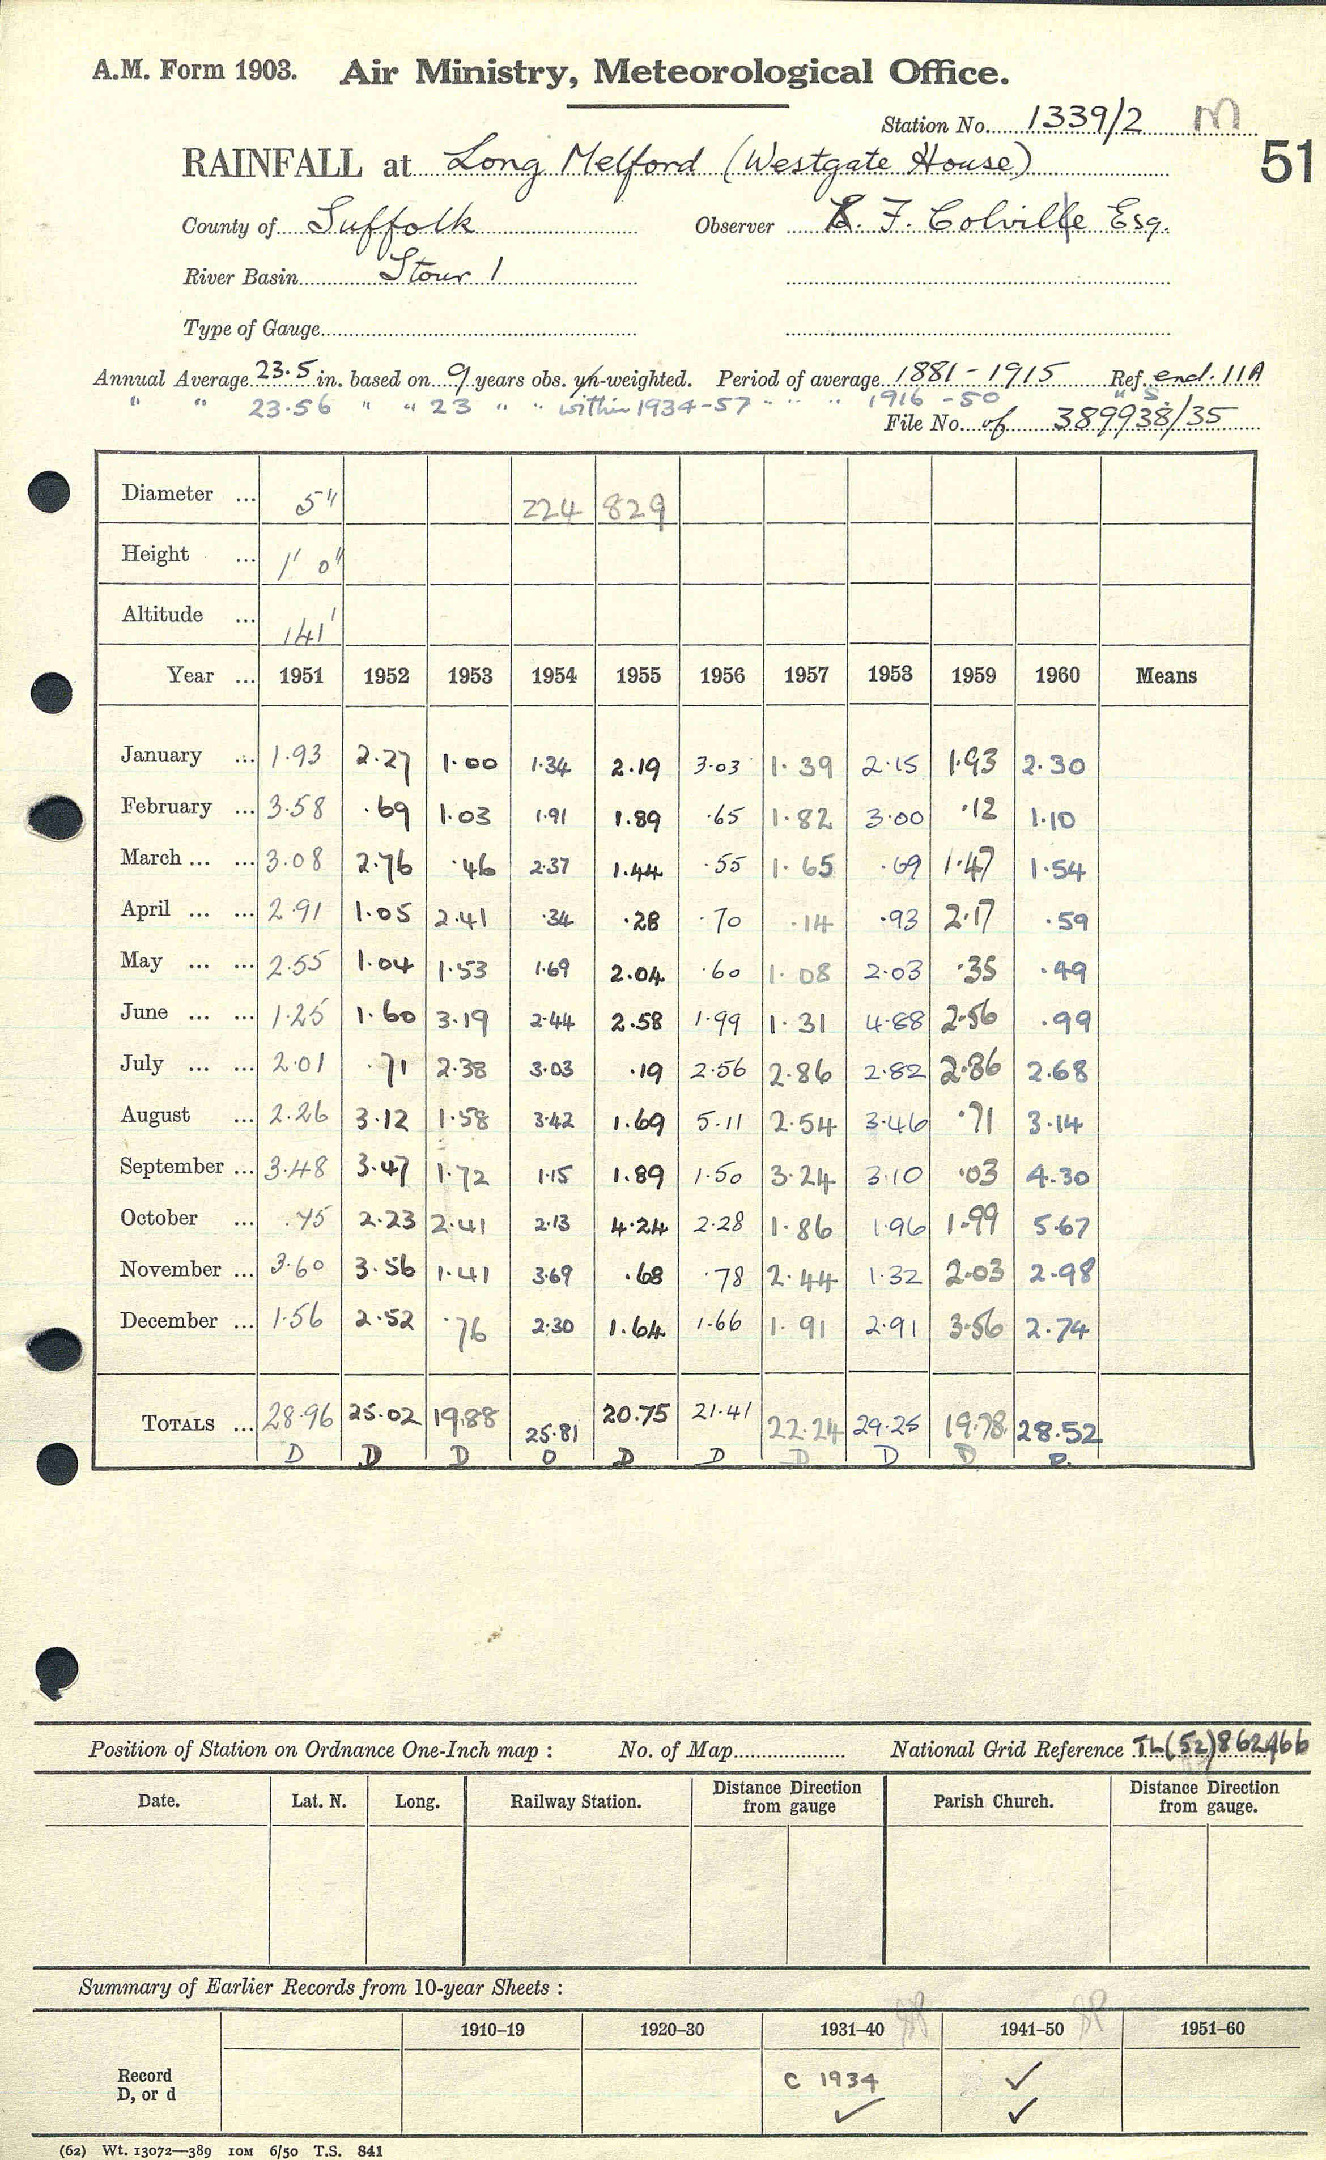 A.M. Form 1903. Air Ministry, Meteorological Office.
Station No. 1339/2 M
51
RAINFALL at Long Melford (Westgate House)
County of Suffolk Observer F. Colville Esq.
River Basin Stour 1
Type of Gauge
Annual Average 23.5 in. based on 9 years obs. un-weighted. Period of average 1881-1915 Ref. encl. 11A
" " 23.56 " " 23 " " within 1934-57 " " " 1916-50 " S.
File No. of 389938/35
Diameter ... 5" 224 829
Height ... 1' 0"
Altitude ... 141'
Year ... 1951 1952 1953 1954 1955 1956 1957 1958 1959 1960 Means
January ... 1.93 2.27 1.00 1.34 2.19 3.03 1.39 2.15 1.93 2.30
February ... 3.58 .69 1.03 1.91 1.89 .65 1.82 3.00 .12 1.10
March ... ... 3.08 2.76 .46 2.37 1.44 .55 1.65 .69 1.47 1.54
April ... ... 2.91 1.05 2.41 .34 .28 .70 .14 .93 2.17 .59
May ... ... 2.55 1.04 1.53 1.69 2.04 .60 1.08 2.03 .35 .49
June ... ... 1.25 1.60 3.19 2.44 2.58 1.99 1.31 4.88 2.56 .99
July ... ... 2.01 .71 2.38 3.03 .19 2.56 2.86 2.82 2.86 2.68
August ... 2.26 3.12 1.58 3.42 1.69 5.11 2.54 3.46 .71 3.14
September ... 3.48 3.47 1.72 1.15 1.89 1.50 3.24 3.10 .03 4.30
October ... .75 2.23 2.41 2.13 4.24 2.28 1.86 1.96 1.99 5.67
November ... 3.60 3.56 1.41 3.69 .68 .78 2.44 1.32 2.03 2.98
December ... 1.56 2.52 .76 2.30 1.64 1.66 1.91 2.91 3.56 2.74
TOTALS ... 28.96 25.02 19.88 25.81 20.75 21.41 22.24 29.25 19.78 28.52
D D D D D D D D D D.
Position of Station on Ordnance One-Inch map : No. of Map National Grid Reference TL(52)862466
Date. Lat. N. Long. Railway Station. Distance Direction from gauge Parish Church. Distance Direction from gauge.
Summary of Earlier Records from 10-year Sheets :
1910–19 1920–30 1931–40 1941–50 1951–60
Record D, or d C 1934 ✓ ✓
✓
(62) Wt. 13072—389 10M 6/50 T.S. 841